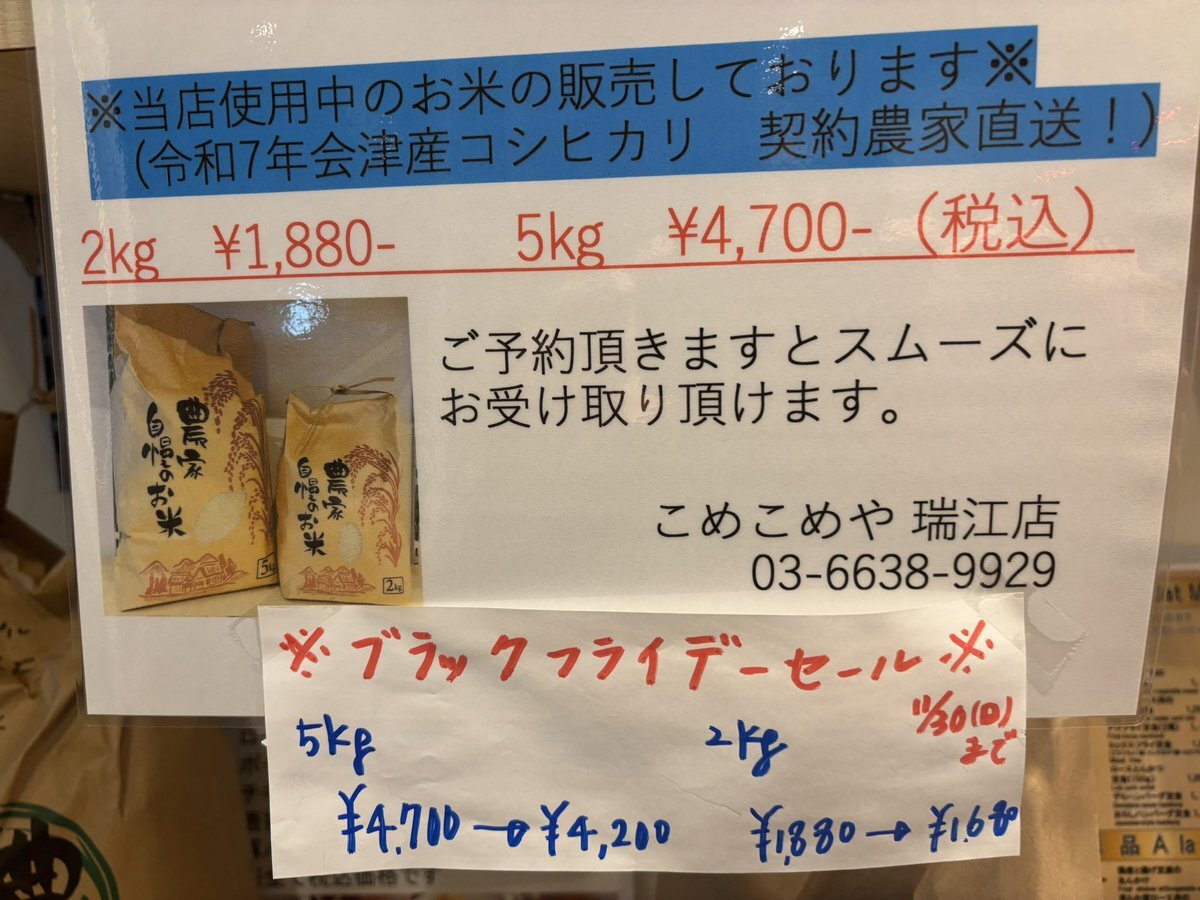 ※当店使用中のお米の販売しております※
(令和7年会津産コシヒカリ　契約農家直送！)
2kg　¥1,880-　　5kg　¥4,700-（税込）
ご予約頂きますとスムーズに
お受け取り頂けます。
農家
自慢のお米
5kg
農家
自慢のお米
2kg
こめこめや 瑞江店
03-6638-9929
※ブラックフライデーセール※
11/30(日)
まで
5kg
¥4,700→¥4,200
2kg
¥1,880→¥1,680
品 A la